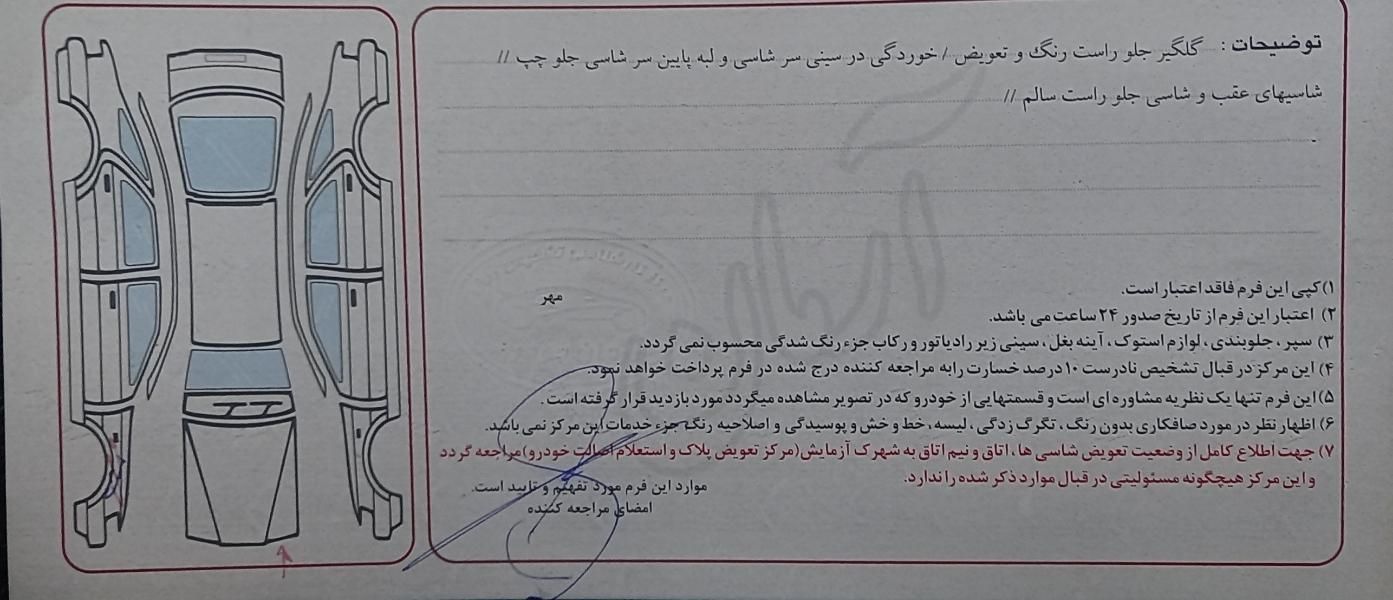 توضیحات : گلگیر جلو راست رنگ و تعویض / خوردگی در سینی سر شاسی و لبه پایین سر شاسی جلو چپ //
شاسیهای عقب و شاسی جلو راست سالم //
۱) کپی این فرم فاقد اعتبار است.
مهر
۲) اعتبار این فرم از تاریخ صدور ۲۴ ساعت می باشد.
۳) سپر ، جلوبندی ، لوازم استوک ، آینه بغل ، سینی زیر رادیاتور و رکاب جزء رنگ شدگی محسوب نمی گردد.
۴) این مرکز در قبال تشخیص نادرست ۱۰ درصد خسارت را به مراجعه کننده درج شده در فرم پرداخت خواهد نمود.
۵) این فرم تنها یک نظریه مشاوره ای است و قسمتهایی از خودرو که در تصویر مشاهده میگردد مورد بازدید قرار گرفته است.
۶) اظهار نظر در مورد صافکاری بدون رنگ ، تگرگ زدگی ، لیسه ، خط و خش و پوسیدگی و اصلاحیه رنگ جزء خدمات این مرکز نمی باشد.
۷) جهت اطلاع کامل از وضعیت تعویض شاسی ها ، اتاق و نیم اتاق به شهرک آزمایش (مرکز تعویض پلاک و استعلام اصالت خودرو) مراجعه گردد
و این مرکز هیچگونه مسئولیتی در قبال موارد ذکر شده را ندارد.
موارد این فرم مورد تفهیم و تایید است.
امضای مراجعه کننده